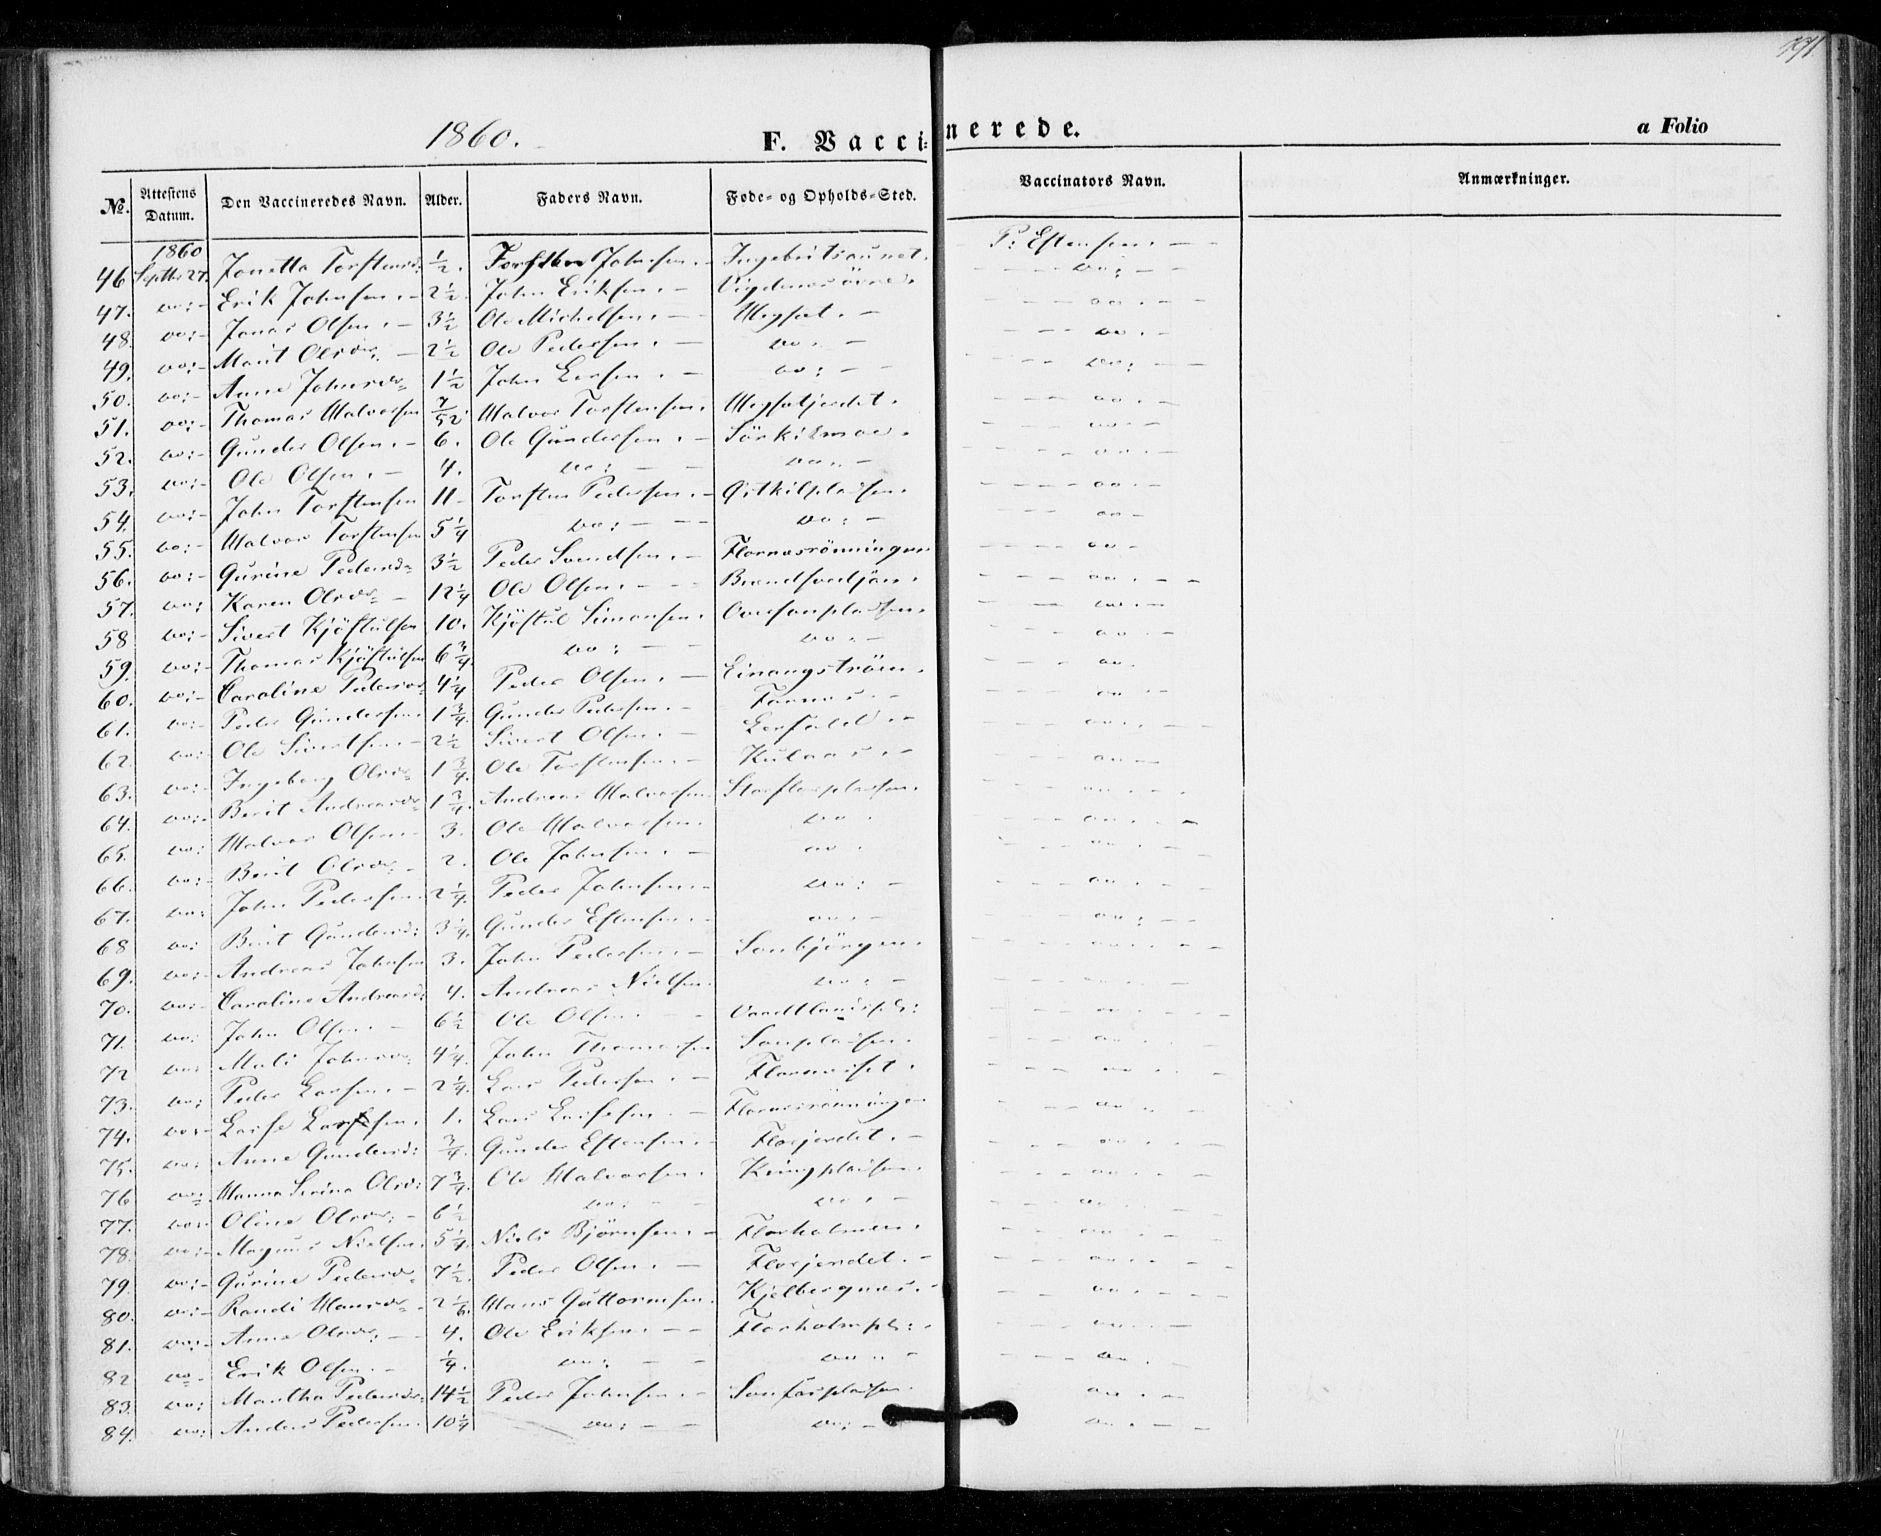 1860.
F. Vaccinerede.
a Folio
No. Attestens Datum. Den Vaccineredes Navn. Alder. Faders Navn. Føde- og Opholds-Sted. Vaccinators Navn. Anmærkninger.
1860
46 Septbr 27. Jonetta Torstensd: ½. Torsten Johnsen. - Ingebritsaunet. P: Estensen. - -
47. do: - Erik Johnsen. - 2½. John Eriksen. - - do: - -
48. do: - Jonas Olsen. - 3½ Ole Michelsen. - Megsæt. - - do. - -
49. do: - Marit Olsdr. - 2½ Ole Pedersen. - do. - - do. -
50. do: - Anne Johnsdr 1½ John Larsen. - do: - - do: - -
51. do: - Thomas Halvorsen 7/52 Halvor Torstensen. - do. -
52. do: - Gunder Olsen. - 6. Ole Gundersen. - Sörkilmoe. - do. -
53. do: - Ole Olsen. - 4. do: - - do. - - do. -
54. do: - John Torstensen 11 - Torsten Pedersen. - - do. -
55. do: - Halvor Torstensen 5¼ do: - - - do: - - do -
56. do: - Gurine Pedersd 3½ Peder Svendsen. - Flornæsrönningen - do -
57. do: Karen Olsdr - 12¼ Ole Olsen. - - - do. - -
58 do: - Sivert Kjöstulsen 10. Kjöstul Simonsen. - do. -
59. do: - Thomas Kjöstulsen 6¾ do: - - do. - - do. -
60. do: - Caroline Pedersdr 4¼ Peder Olsen. - Einangströen. - do.
61. do: - Peder Gundersen. 1¾. Gunder Pedersen. - Fornæs. - - do -
62 do: Ole Sivertsen. - 2½ Sivert Olsen. - Lerfald. - - do. - -
63. do: - Ingeborg Olsdr 1¾. Ole Torstensen. - Kulaas. - - do -
64. do: - Berit Andreasdr 1¾. Andreas Halvorsen - do. - -
65. do: Halvor Olsen - 3. Ole Halvorsen. do. - do. - -
66. do: - Berit Olsdr. - 2. Ole Johnsen. - do. - do. - -
67. do: John Pedersen. 2¼. Peder Johnsen. - do: - - do. - -
68 do: Berit Gundersd: 3¼. Gunder Estensen. - do. - - do: - -
69. do: - Andreas Johnsen 3. John Pedersen. - Sonbjörgen. - do. - -
70. do: - Caroline Andreasd: 4. Andreas Nielsen. do: - - do. -
71. do: John Olsen. - 6½ Ole Olsen. - - do. - -
72 do: Mali Johnsdr 4¼. John Thomassen Sonpladsen. - do. -
73. do: Peder Larsen. - 2¼. Lars Pedersen. - - do. -
74. do: - Lasse Larssen. 1. Lars Larssen. - Flornæsrönningen - do - -
75. do: Anne Gundersd: ¾. Gunder Estensen. - Florjerdet. - - do. - -
76 do: Hanna Serina Olsd: 7¾. Ole Halvorsen. - do. - -
77. do: - Oline Olsdr: - 6½ do: - - do. - - do. -
78. do: - Magnus Nielsen. 5¼. Niels Björnsen. - Florholmen. - do. - -
79. do: - Gurine Pedersdr 7½. Peder Olsen. - Florjerdet. - - do. - -
80. do: - Randi Hansdr - 2⅙. Hans Guttormsen. Kjelbergnæs. - - do. - -
81. do: - Anne Olsdr: - - 4. Ole Eriksen. - - Florholmpl: - - do. - -
82 do - Erik Olsen. - ¼. do: - - do. - - do. -
83. do: Martha Pedersdr 14½ Peder Johnsen. - - do. - -
84. do: Anders Pedersen. 10¼ do: - - do: - - do. - -